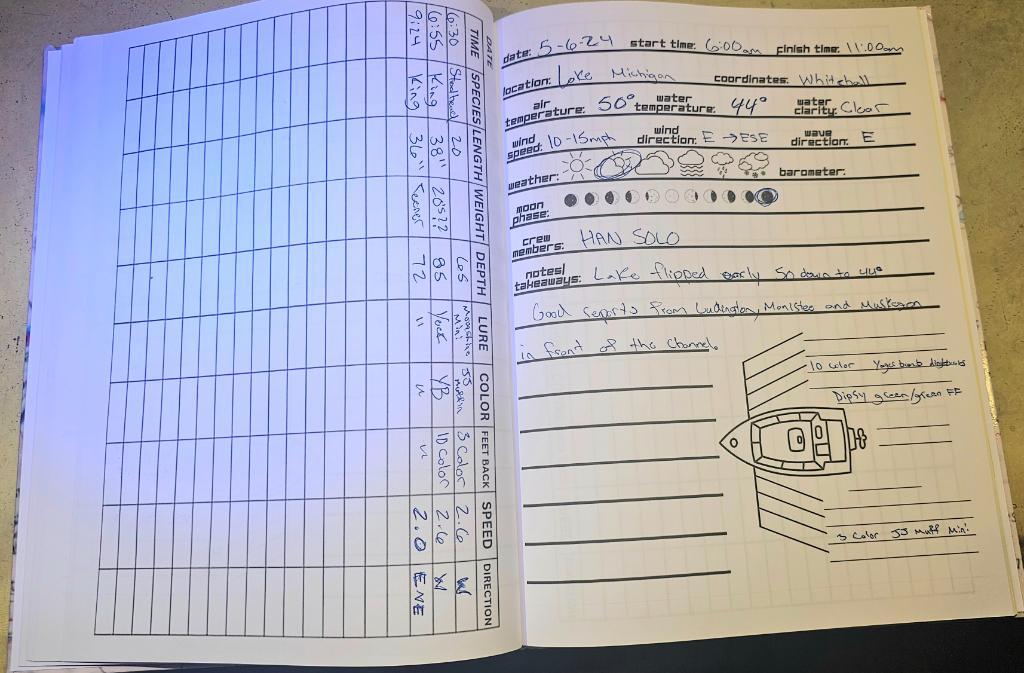 DATE
TIME SPECIES LENGTH WEIGHT DEPTH LURE COLOR FEET BACK SPEED DIRECTION
6:30 Steelhead 20 65 Moonshine Mini JJ Muffin 3 Color 2.6 W
6:55 King 38" 20's?? 85 YB 10 Color 2.6 W
9:24 King 36" Teener 72 " " " 2.0 ENE
date: 5-6-24 start time: 6:00am finish time: 11:00am
location: Lake Michigan coordinates: Whitehall
air temperature: 50° water temperature: 44° water clarity: Clear
wind speed: 10-15mph wind direction: E → ESE wave direction: E
weather: barometer:
moon phase:
crew members: HAN SOLO
notes/takeaways: Lake flipped early 50 down to 44°
Good reports from Ludington, Manistee and Muskegon
in front of the Channels
10 color
Dipsy green/green FF
3 Color JJ Muff Mini